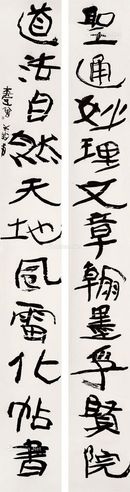 聖通妙理文章翰墨孚賢院
道法自然天地風雷化帖書